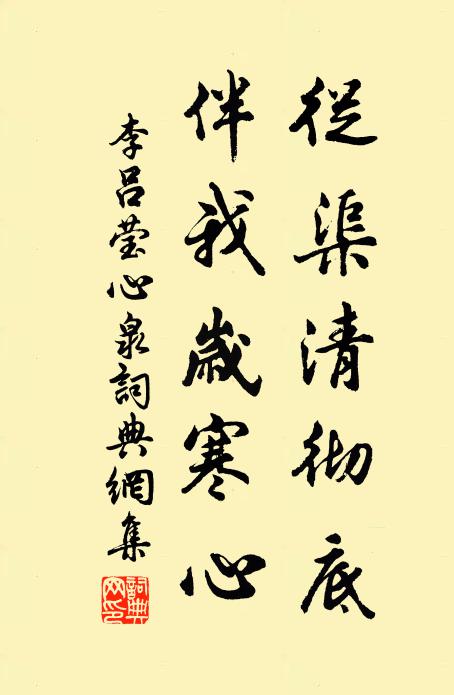 從渠清彻底
伴我歲寒心
李呂瑩心泉詞典網集
詞典网印